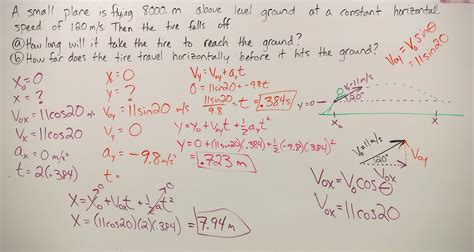 A small plane is flying 8000. m above level ground at a constant horizontal
speed of 120 m/s. Then the tire falls off.
ⓐ How long will it take the tire to reach the ground?
ⓑ How far does the tire travel horizontally before it hits the ground?
X₀=0
X=?
V₀ₓ=11cos20 m/s
Vₓ=11cos20
aₓ=0 m/s²
t=2(.384)
X=X₀+V₀ₓt+½aₓt²
X=(11cos20)(2)(.384)=7.94m
Y₀=0
Y=?
V₀y=11sin20 m/s
Vy=0
ay=-9.8 m/s²
t=
Vy=V₀y+ayt
0=11sin20+-9.8t
11sin20/9.8=t=.384s
Y=Y₀+V₀yt+½ayt²
Y=0+(11sin20)(.384)+½(-9.8)(.384)²
=.723m
V₀y=V₀sinθ
V₀y=11sin20
V₀=11m/s
20°
y=0
X₀
X
V₀=11m/s
20°
V₀y
V₀ₓ
V₀ₓ=V₀cosθ
V₀ₓ=11cos20